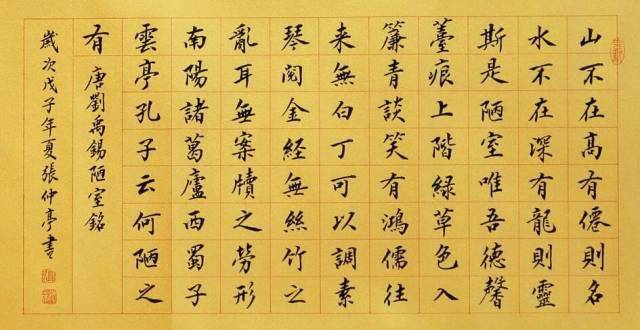 山不在高有僊則名
水不在深有龍則靈
斯是陋室唯吾德馨
薹痕上階綠草色入
簾青談笑有鴻儒往
来無白丁可以調素
琴閱金経無絲竹之
亂耳無案牘之勞形
南陽諸葛廬西蜀子
雲亭孔子云何陋之
有
唐劉禹錫陋室銘
歲次戊子年夏張仲亭書